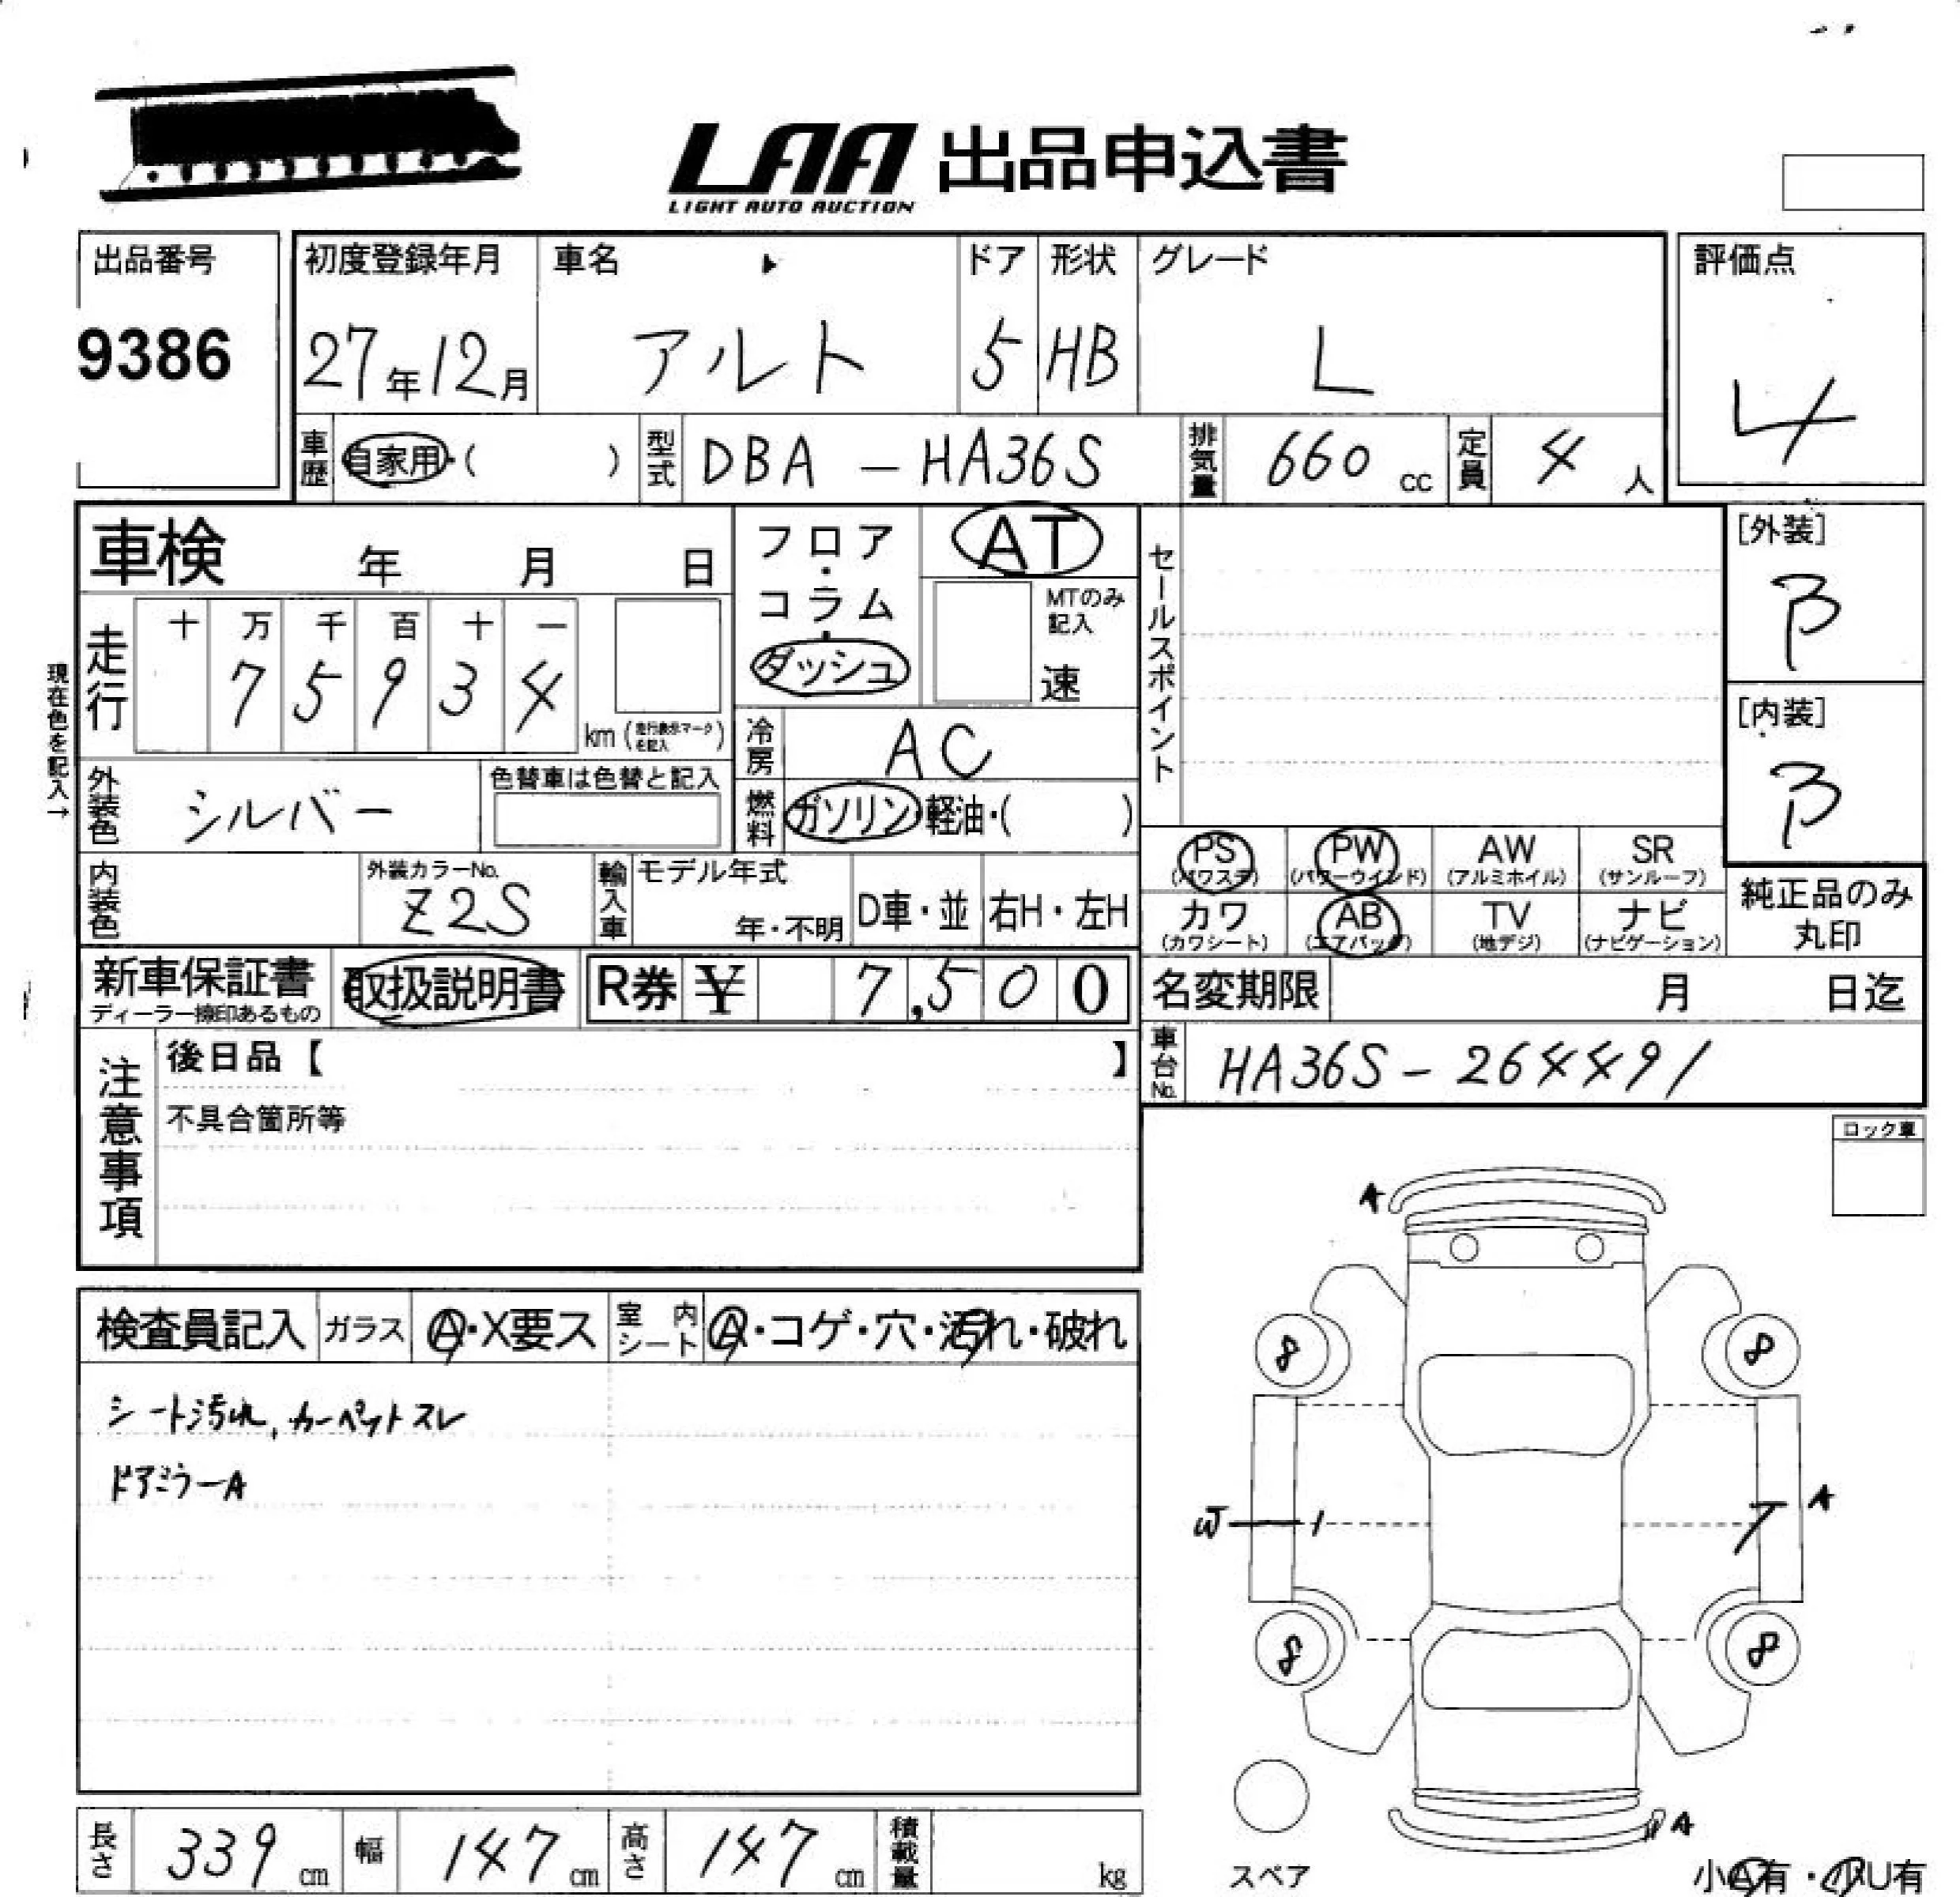 LAA 出品申込書
LIGHT AUTO AUCTION
出品番号
9386
初度登録年月
27年12月
車名
アルト
ドア
5
形状
HB
グレード
L
評価点
4
車歴
自家用・( )
型式
DBA - HA36S
排気量
660 cc
定員
4 人
車検 年 月 日
フロア・コラム・ダッシュ
AT
MTのみ記入
速
セールスポイント
[外装]
B
[内装]
B
現在色を記入→
走行
十 万 千 百 十 一
7 5 9 3 4
km (走行表示マークを記入)
冷房
AC
外装色
シルバー
色替車は色替と記入
燃料
ガソリン・軽油・( )
内装色
外装カラーNo.
Z2S
輸入車
モデル年式
年・不明
D車・並
右H・左H
PS (パワステ)
PW (パワーウインド)
AW (アルミホイル)
SR (サンルーフ)
カワ (カワシート)
AB (エアバッグ)
TV (地デジ)
ナビ (ナビゲーション)
純正品のみ
丸印
新車保証書
ディーラー捺印あるもの
取扱説明書
R券 ¥ 7,500
名変期限 月 日迄
車台No.
HA36S - 264491
注意事項
後日品【 】
不具合箇所等
ロック車
検査員記入
ガラス
A・X要ス
室内シート
A・コゲ・穴・汚れ・破れ
シート汚れ, カーペットスレ
ドアミラーA
A
8 8
W 1
A
8 8
A
スペア
小A有・小U有
長さ
339 cm
幅
147 cm
高さ
147 cm
積載量
kg